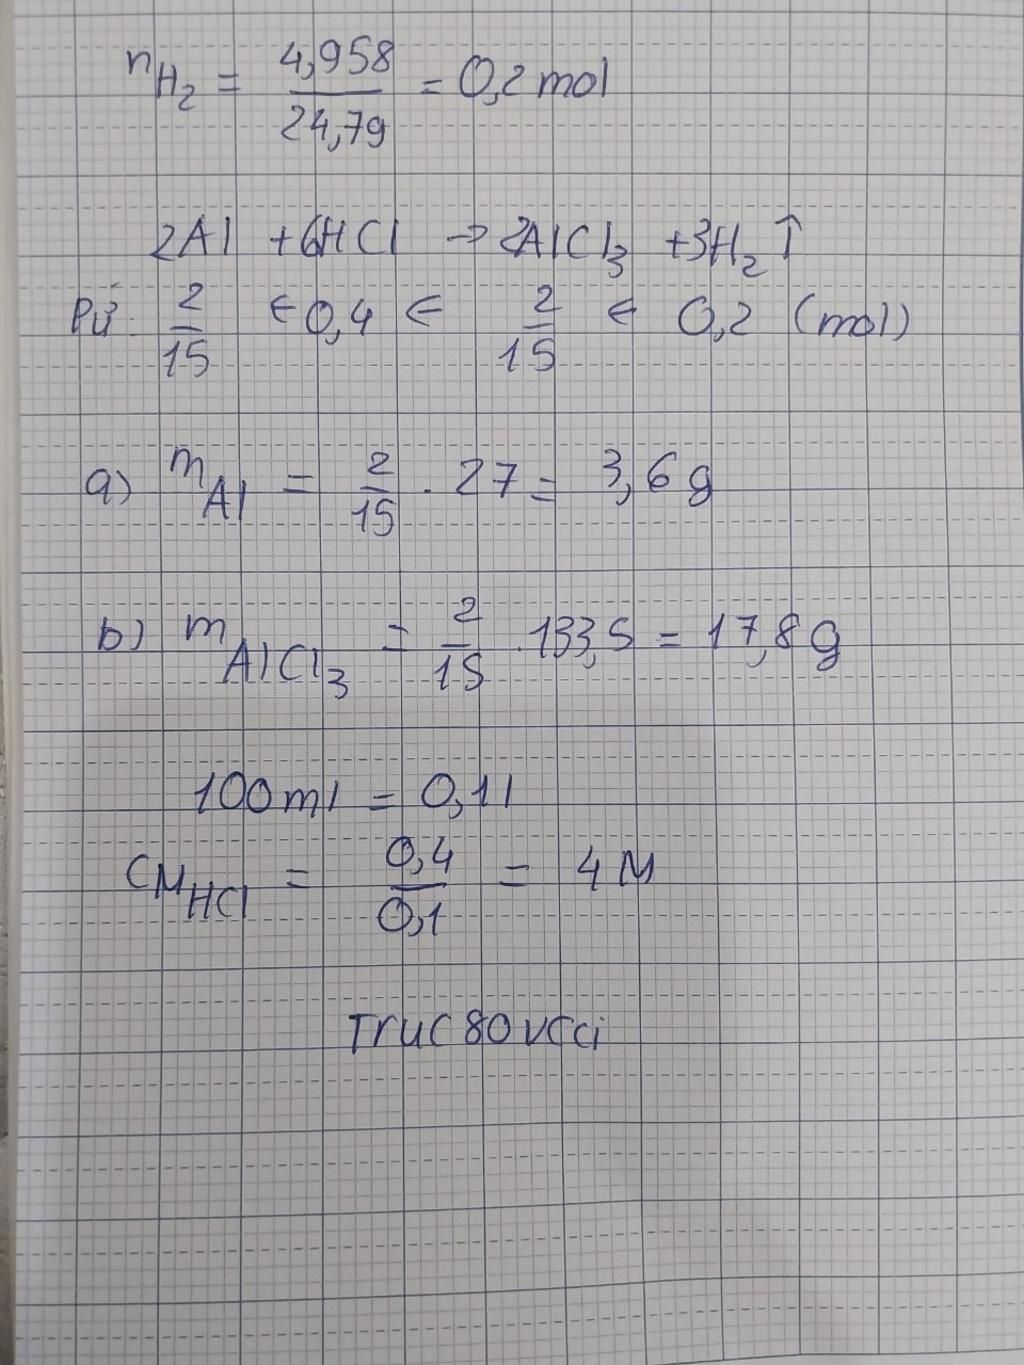 nH₂ = 4,958/24,79 = 0,2 mol
2Al + 6HCl → 2AlCl₃ + 3H₂ ↑
PƯ: 2/15 ← 0,4 ← 2/15 ← 0,2 (mol)
a) mAl = 2/15 . 27 = 3,6 g
b) mAlCl₃ = 2/15 . 133,5 = 17,8 g
100ml = 0,1l
CMHCl = 0,4/0,1 = 4 M
Truc80vcci